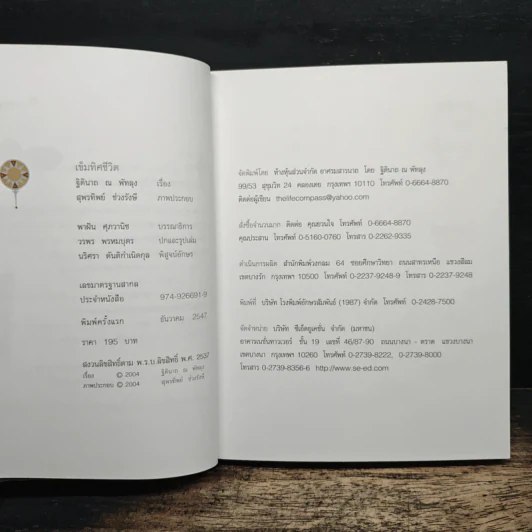 เข็มทิศชีวิต
ฐิตินาถ ณ พัทลุง เรื่อง
สุพรทิพย์ ช่วงรังษี ภาพประกอบ
พาฝัน ศุภวานิช บรรณาธิการ
วรพร พรหมบุตร ปกและรูปเล่ม
นริศรา ตันติกำเนิดกุล พิสูจน์อักษร
เลขมาตรฐานสากล
ประจำหนังสือ 974-926691-8
พิมพ์ครั้งแรก ธันวาคม 2547
ราคา 195 บาท
สงวนลิขสิทธิ์ตาม พ.ร.บ.ลิขสิทธิ์ พ.ศ. 2537
เรื่อง © 2004 ฐิตินาถ ณ พัทลุง
ภาพประกอบ © 2004 สุพรทิพย์ ช่วงรังษี
จัดพิมพ์โดย ห้างหุ้นส่วนจำกัด อาศรมสารนาถ โดย ฐิตินาถ ณ พัทลุง
99/53 สุขุมวิท 24 คลองเตย กรุงเทพฯ 10110 โทรศัพท์ 0-6664-8870
ติดต่อผู้เขียน thelifecompass@yahoo.com
สั่งซื้อจำนวนมาก ติดต่อ คุณยวนใจ โทรศัพท์ 0-6664-8870
คุณประสาน โทรศัพท์ 0-5160-0760 โทรสาร 0-2262-9335
ดำเนินการผลิต สำนักพิมพ์วงกลม 64 ซอยศึกษาวิทยา ถนนสาทรเหนือ แขวงสีลม
เขตบางรัก กรุงเทพฯ 10500 โทรศัพท์ 0-2237-9248-9 โทรสาร 0-2237-9248
พิมพ์ที่ บริษัท โรงพิมพ์อักษรสัมพันธ์ (1987) จำกัด โทรศัพท์ 0-2428-7500
จัดจำหน่าย บริษัท ซีเอ็ดยูเคชั่น จำกัด (มหาชน)
อาคารเนชั่นทาวเวอร์ ชั้น 19 เลขที่ 46/87-90 ถนนบางนา - ตราด แขวงบางนา
เขตบางนา กรุงเทพฯ 10260 โทรศัพท์ 0-2739-8222, 0-2739-8000
โทรสาร 0-2739-8356-6 http://www.se-ed.com